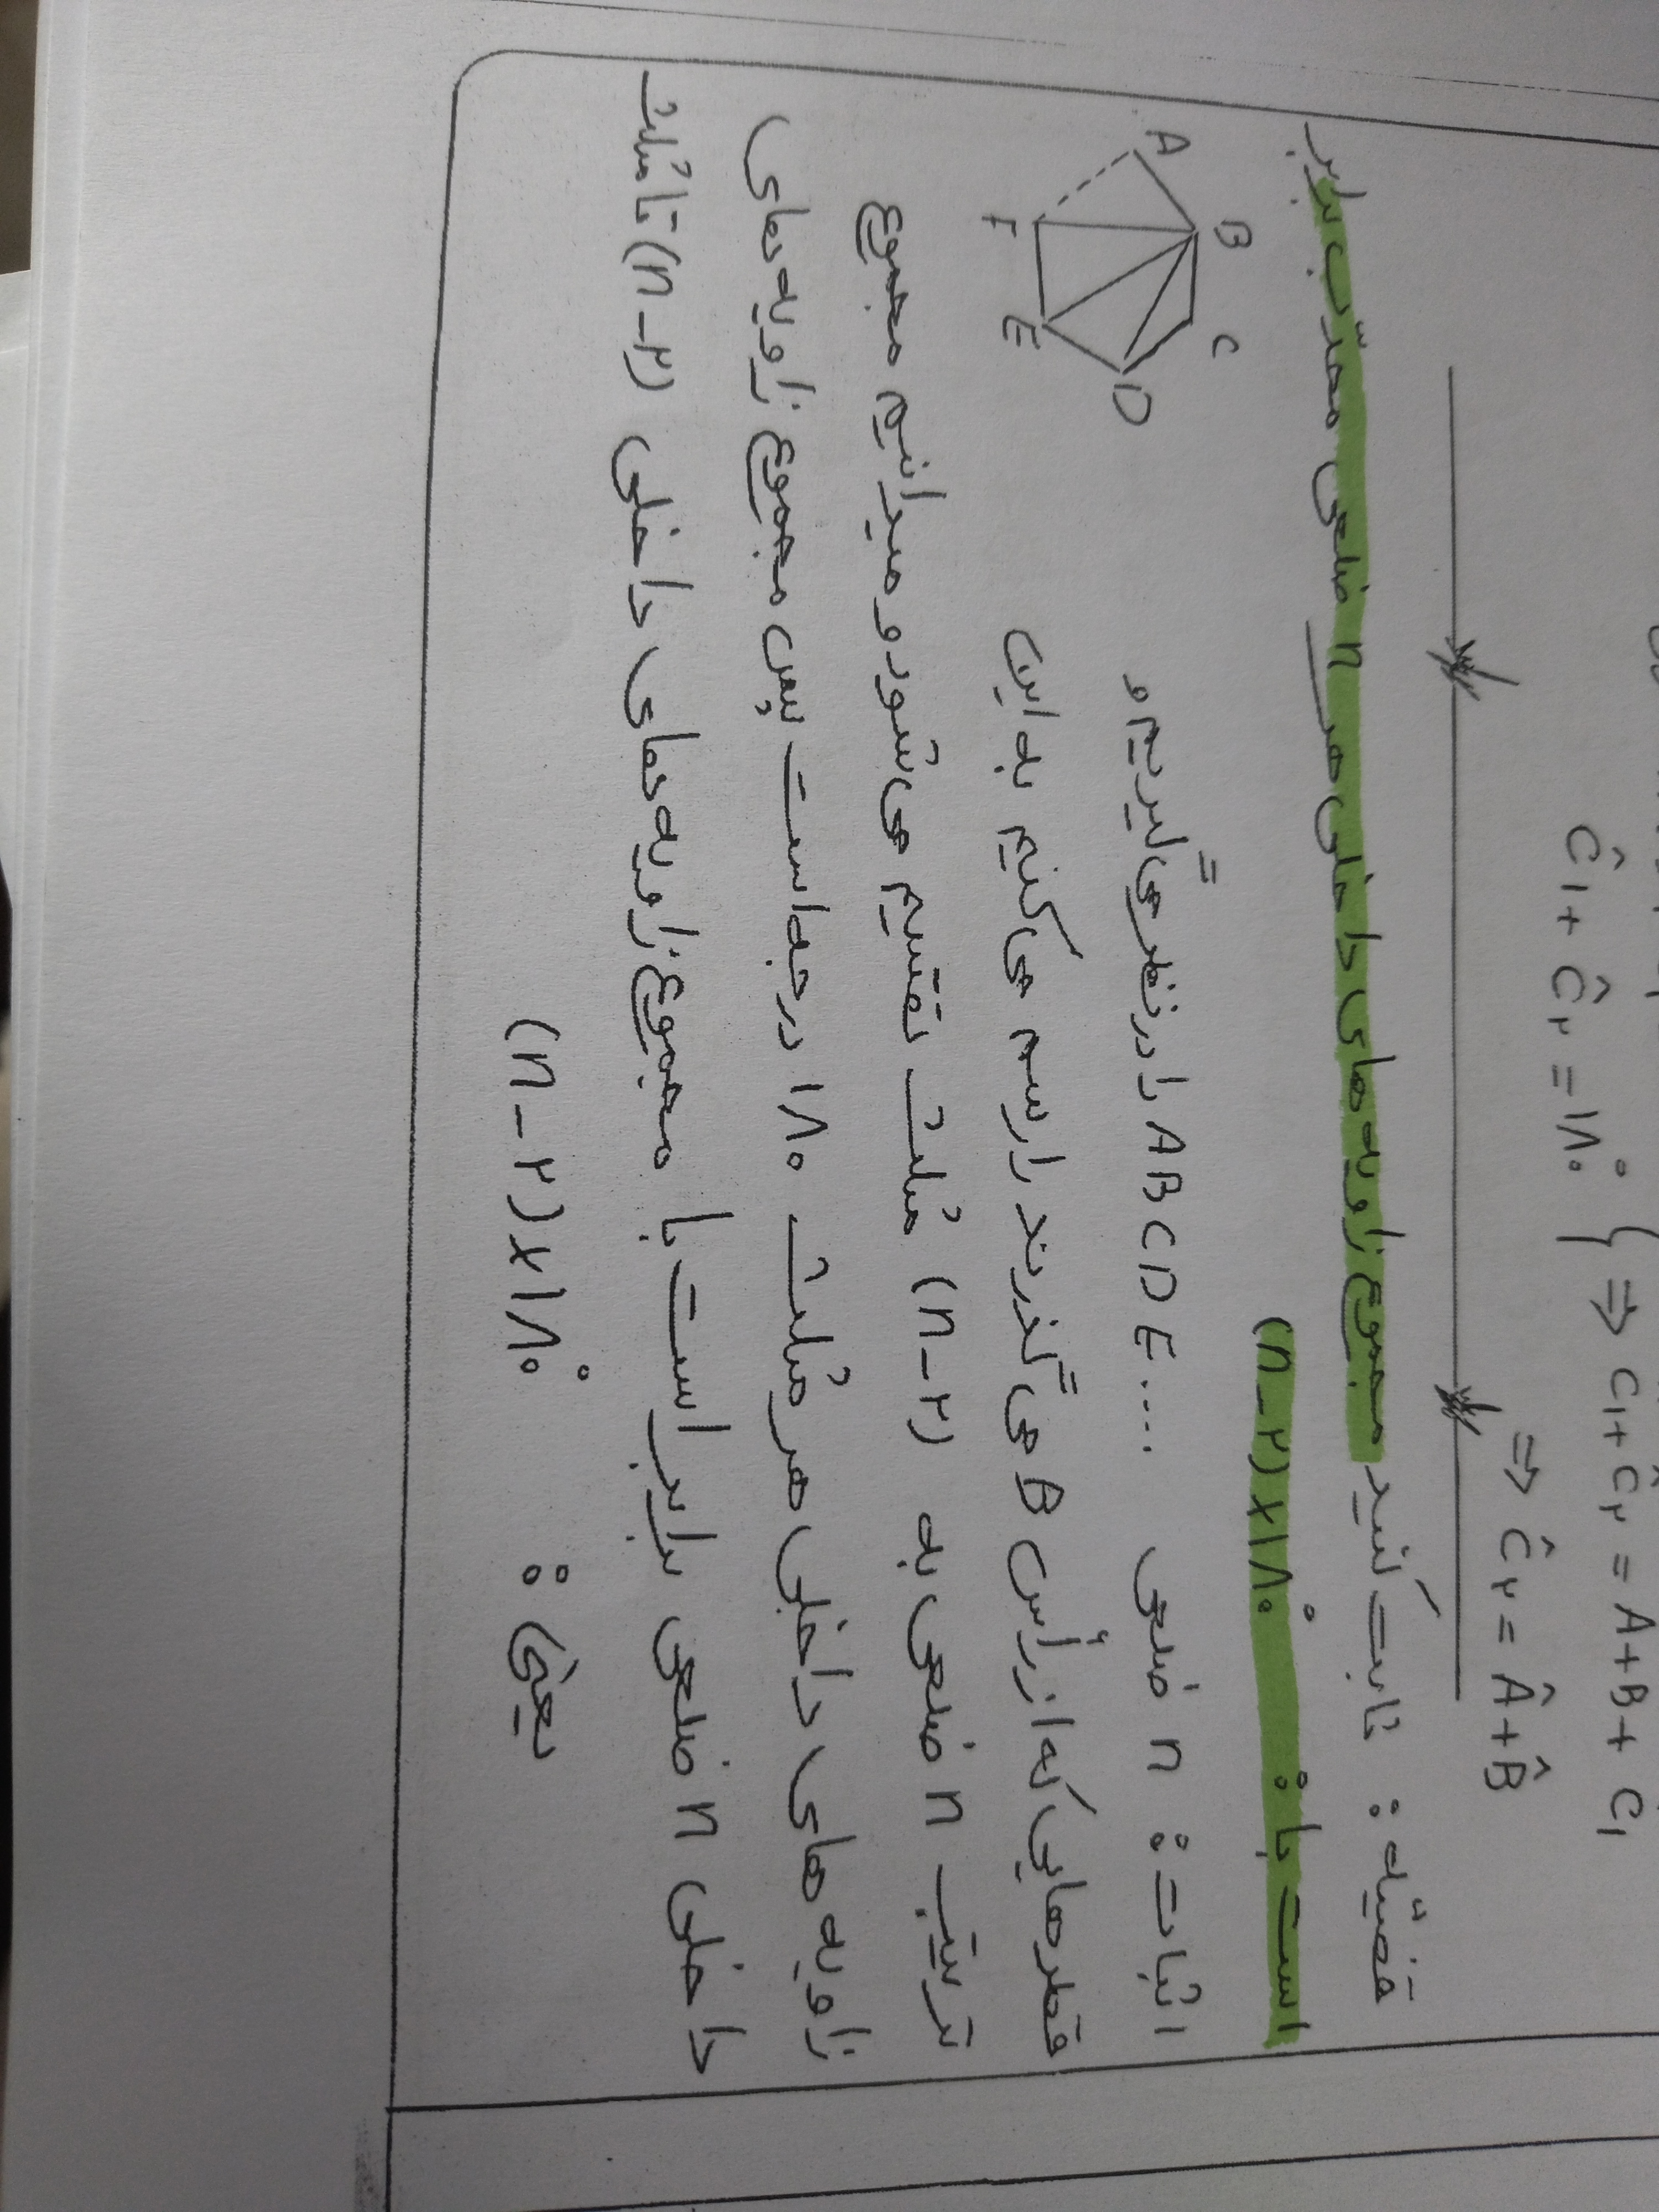 Ĉ۱ + Ĉ۲ = ۱۸۰° } ⇒ C۱ + Ĉ۲ = A + B + C۱
⇒ Ĉ۲ = Â + B̂
قضیّه : ثابت کنید مجموع زاویه های داخلی هر n ضلعی محدّب برابر
است با : (n-۲)×۱۸۰°
اثبات : n ضلعی ABCDE.... را در نظر می گیریم و
قطرهایی که از رأس B می گذرند را رسم می کنیم به این
ترتیب n ضلعی به (n-۲) مثلث تقسیم می شود و میدانیم مجموع
زاویه های داخلی هر مثلث ۱۸۰ درجه است پس مجموع زاویه های
داخلی n ضلعی برابر است با مجموع زاویه های داخلی (n-۲) تا مثلث
یعنی : (n-۲)×۱۸۰°
A
B
C
D
E
F